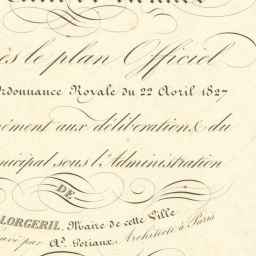 ès le plan Officiel
Ordonnance Royale du 22 Avril 1827
ément aux délibérations du
nicipal sous l'Administration
DE
LORGERIL, Maire de cette Ville
avé par Ad. Goriaux, Architecte à Paris